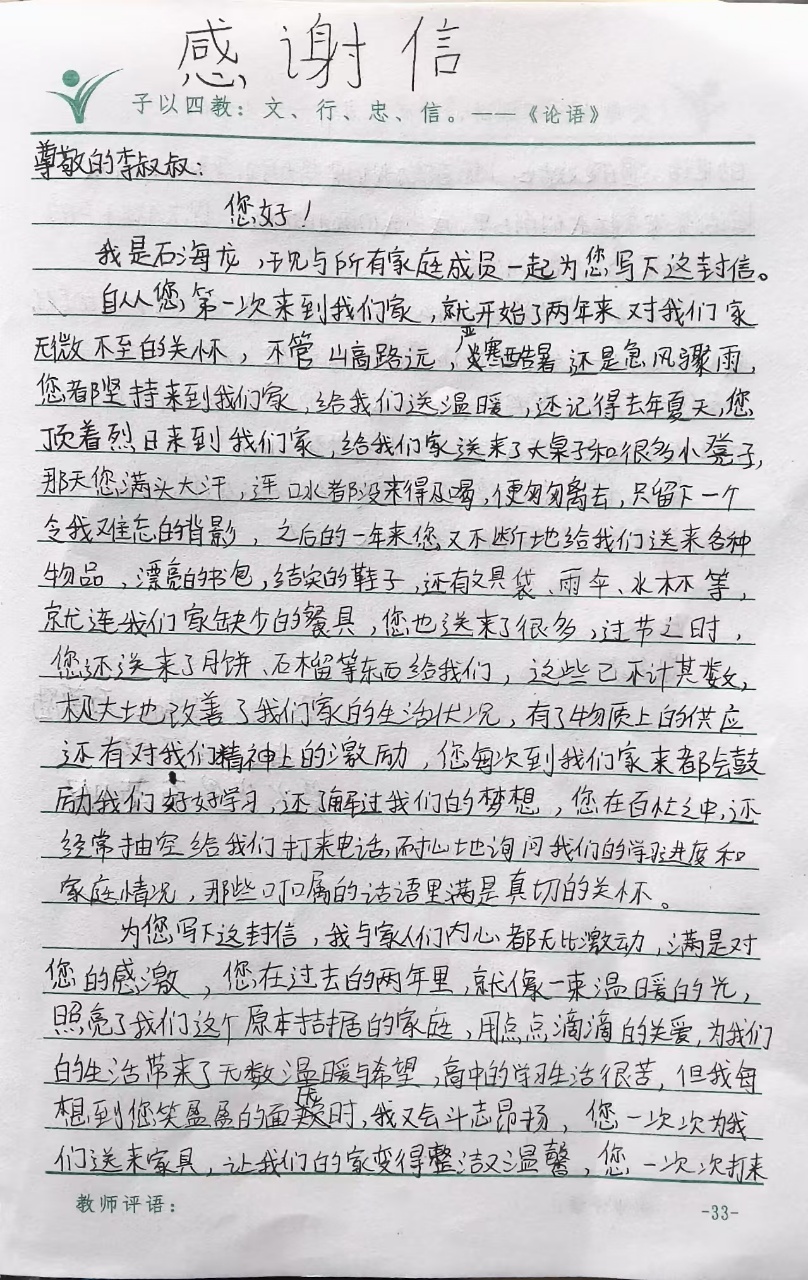 感谢信
子以四教：文、行、忠、信。——《论语》
尊敬的李叔叔：
您好！
我是石海龙，现与所有家庭成员一起为您写下这封信。
自从您第一次来到我们家，就开始了两年来对我们家
无微不至的关怀，不管山高路远，严寒酷暑还是急风骤雨，
您都坚持来到我们家，给我们送温暖，还记得去年夏天，您
顶着烈日来到我们家，给我们家送来了大桌子和很多小凳子，
那天您满头大汗，连口水都没来得及喝，便匆匆离去，只留下一个
令我难忘的背影，之后的一年来您又不断地给我们送来各种
物品，漂亮的书包，结实的鞋子，还有文具袋、雨伞、水杯等，
就连我们家缺少的餐具，您也送来了很多，过节之时，
您还送来了月饼、石榴等东西给我们，这些已不计其数，
极大地改善了我们家的生活状况，有了物质上的供应
还有对我们精神上的激励，您每次到我们家来都会鼓
励我们好好学习，还了解过我们的梦想，您在百忙之中，还
经常抽空给我们打来电话，耐心地询问我们的学习进度和
家庭情况，那些叮嘱的话语里满是真切的关怀。
为您写下这封信，我与家人们内心都无比激动，满是对
您的感激，您在过去的两年里，就像一束温暖的光，
照亮了我们这个原本拮据的家庭，用点点滴滴的关爱，为我们
的生活带来了无数温暖与希望，高中的学习生活很苦，但我每
想到您笑盈盈的面庞时，我又会斗志昂扬，您一次次为我
们送来家具，让我们的家变得整洁又温馨，您一次次打来
教师评语：
-33-